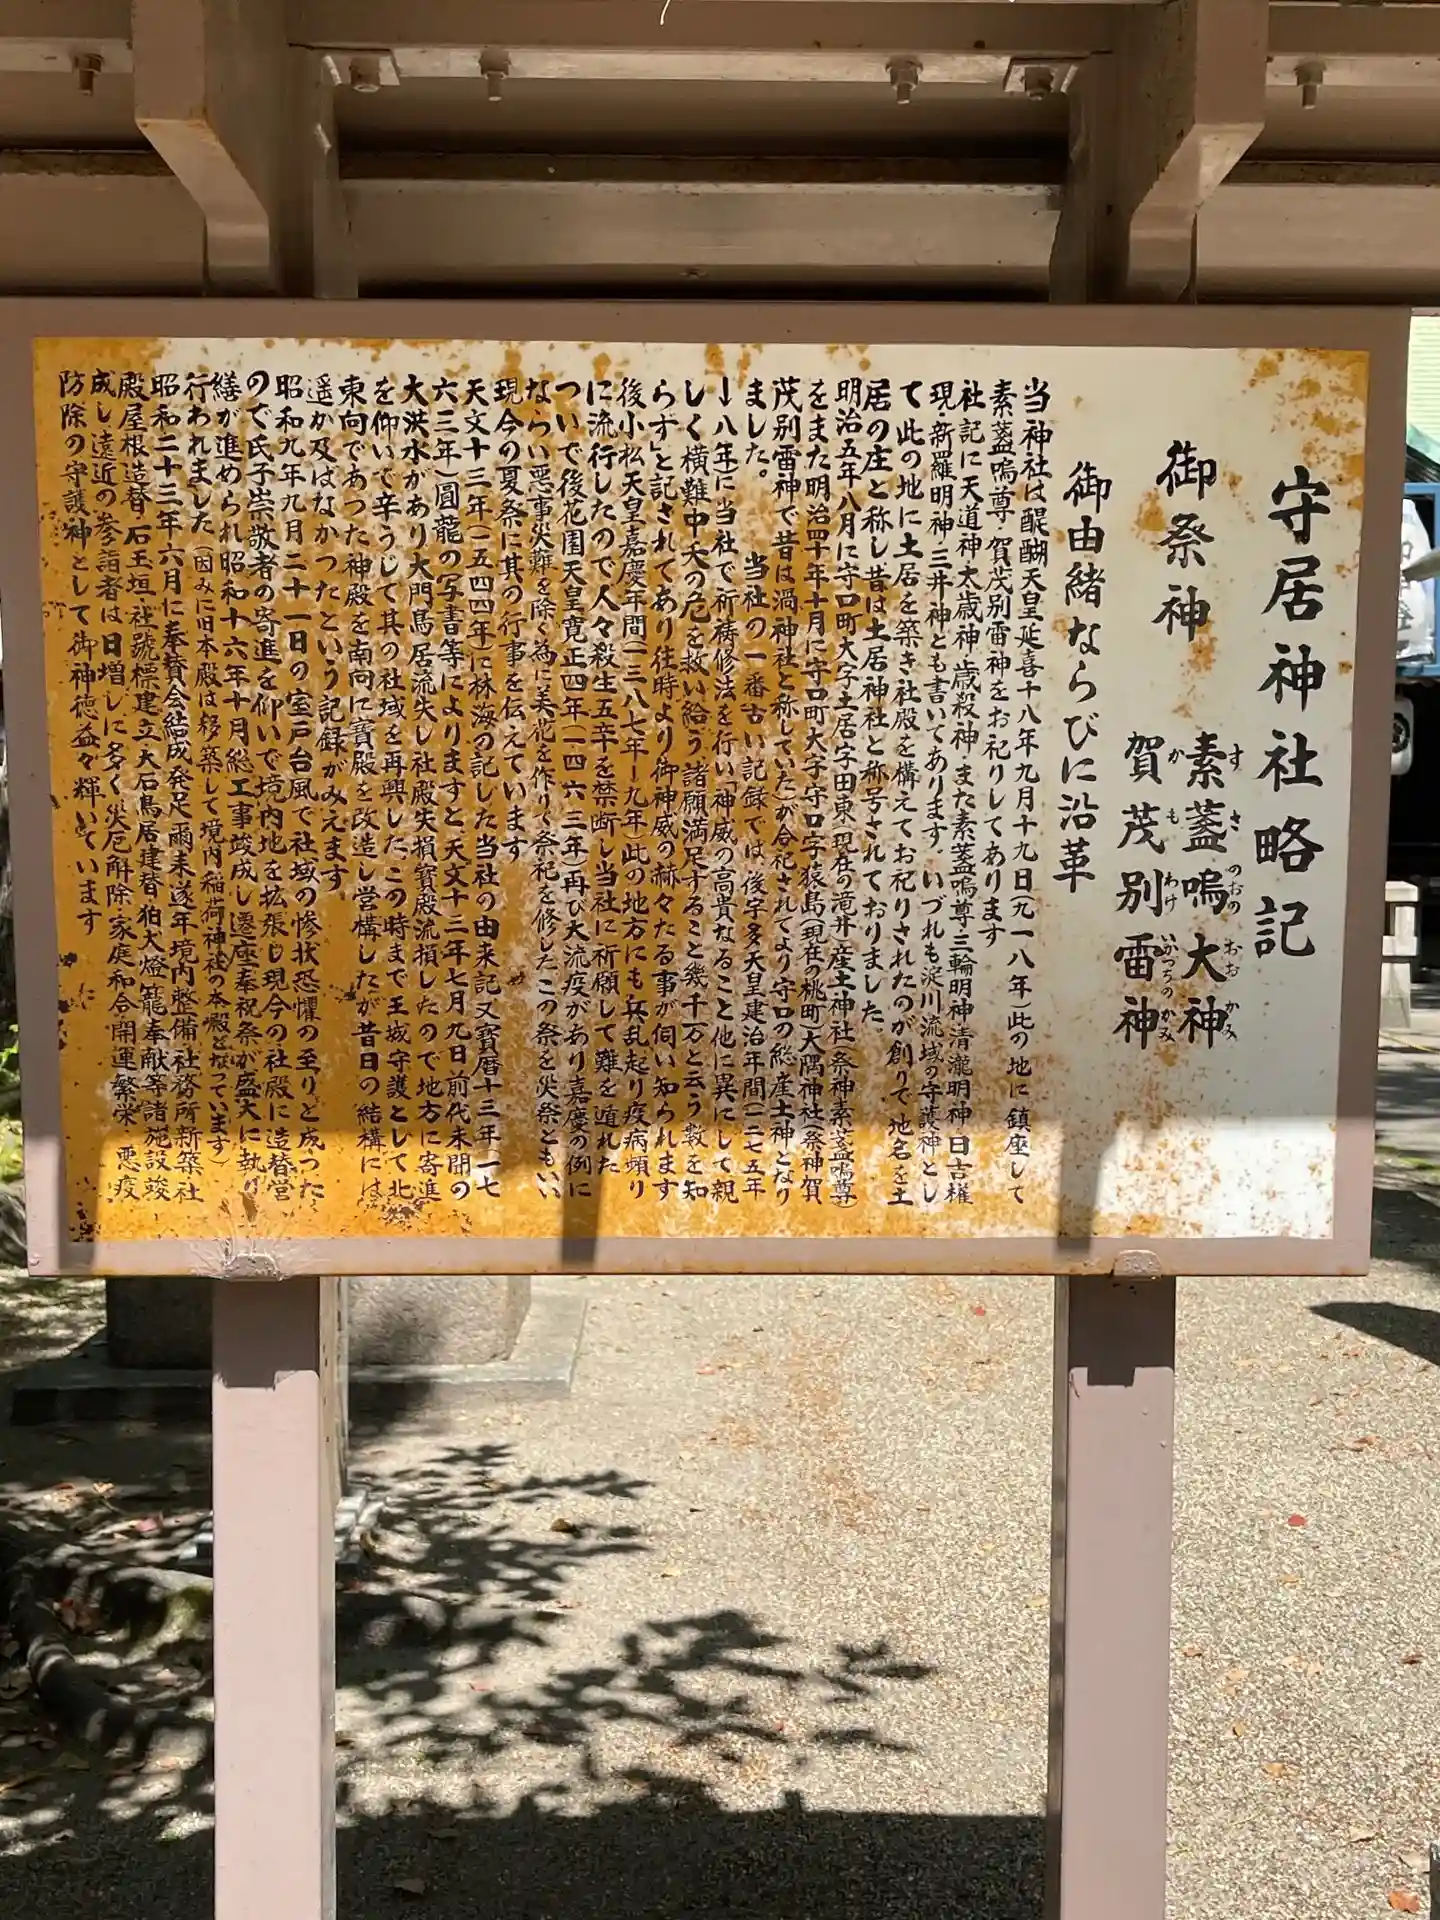 守居神社略記
御祭神　素盞嗚大神
すさのおのおおかみ
賀茂別雷神
かもわけいかづちのかみ
御由緒ならびに沿革
当神社は醍醐天皇延喜十八年九月十九日(九一八年)此の地に鎮座して
素盞嗚尊 賀茂別雷神をお祀りしてあります
社記に天道神 太歳神 歳殺神 また素盞嗚尊 三輪明神 清瀧明神 日吉権
現・新羅明神 三井神とも書いてあります。いづれも淀川流域の守護神とし
て此の地に土居を築き社殿を構えてお祀りされたのが創りで地名を土
居の庄と称し昔は土居神社と称号されておりました
明治五年八月に守口町大字土居字田東(現在の滝井)産土神社(祭神素盞嗚尊)
をまた明治四十年十月に守口町大字守口字猿島(現在の桃町)大隅神社(祭神賀
茂別雷神で昔は渦神社と称していた)が合祀されてより守口の総産土神となり
ました。　当社の一番古い記録では後宇多天皇建治年間(一二七五年
ー八年)に当社で祈祷修法を行い「神威の高貴なること他に異にして親
しく横難中夭の危を救い給う諸願満足すること幾千万と云う数を知
らず」と記されてあり往時より御神威の赫々たる事が伺い知られます
後小松天皇嘉慶年間(一三八七年ー九年)此の地方にも兵乱起り疫病頻り
に流行したので人々殺生五辛を禁断し当社に祈願して難を遁れた
ついで後花園天皇寛正四年(一四六三年)再び大流疫があり嘉慶の例に
ならい悪事災難を除く為に美花を作りて祭祀を修したこの祭を災祭ともいい
現今の夏祭に其の行事を伝えています
天文十三年(一五四四年)に林海の記した当社の由来記又寶暦十三年(一七
六三年)圓龍の写書等によりますと天文十三年七月九日前代未聞の
大洪水があり大門鳥居流失し社殿失損寶殿流損したので地方に寄進
を仰いで辛うじて其の社域を再興した、この時まで王城守護として北
東向であった神殿を南向に寶殿を改造し営構したが昔日の結構には
遥か及ばなかつたという記録がみえます
昭和九年九月二十一日の室戸台風で社域の惨状恐懼の至りと成つた
ので氏子崇敬者の寄進を仰いで境内地を拡張し現今の社殿に造替営
繕が進められ昭和十六年十月総工事竣成し遷座奉祝祭が盛大に執り
行われました(因みに旧本殿は移築して境内稲荷神社の本殿となつています)
昭和二十三年六月に奉賛会結成発足爾来遂年境内整備社務所新築社
殿屋根造替 石玉垣・社號標建立大石鳥居建替 狛犬燈籠奉献等諸施設竣
成し遠近の参詣者は日増しに多く災厄解除家庭和合開運繁栄 悪疫
防除の守護神として御神徳益々輝いています